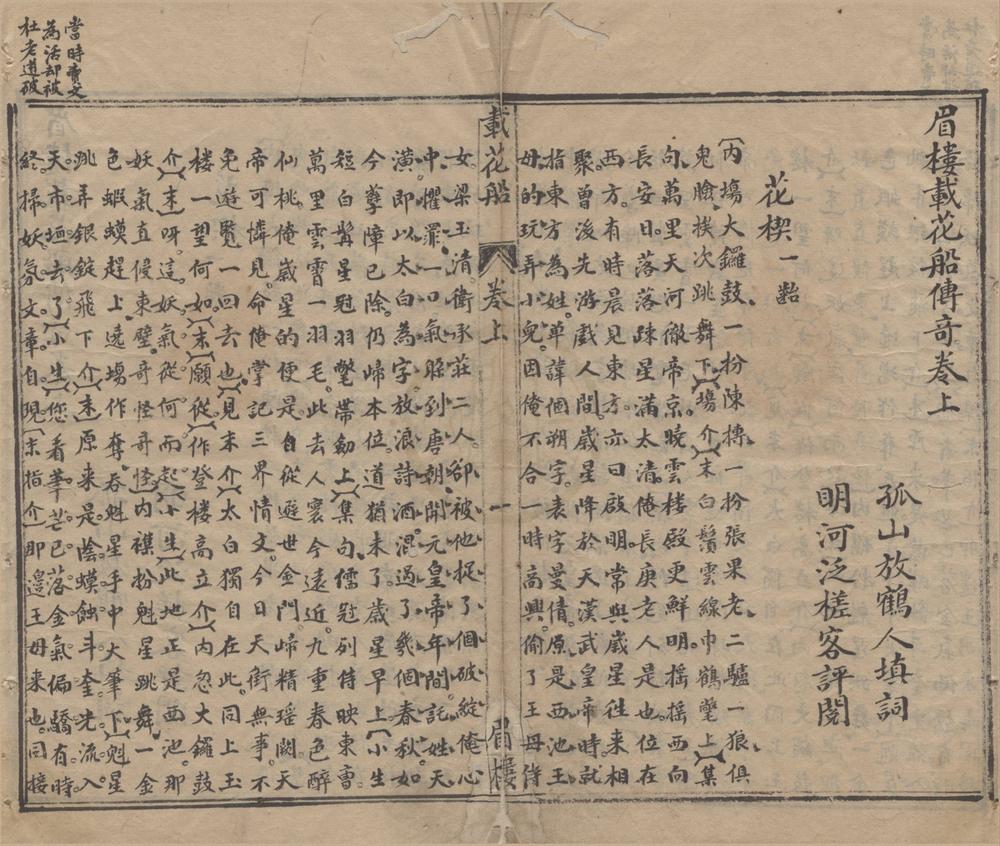 眉樓載花船傳奇卷上
孤山放鶴人填詞
明河泛槎客評閱
花楔一齣
〔內塲大鑼鼓一扮陳摶一扮張果老二驢一狼俱
鬼臉挨次跳舞下塲介〕〔末白鬚雲線巾鶴氅上〕〔集
句萬里天河徹帝京曉雲樓殿更鮮明搖搖西向
長安日落落疎星滿太清俺長庚老人是也位在
西方有時晨見東方亦曰啟明常與嵗星徃來相
聚曾後先游戲人間嵗星降於天漢武皇帝時就
指東方為姓單諱個朔字表字曼倩原是西池王
母的玩弄小兒因俺不合一時高興偷了王母侍
載花船 卷上 一 眉樓
女梁玉清衛承莊二人卻被他捉了個破綻俺心
中懼罪一口氣躲到唐朝開元皇帝年間託姓天
潢即以太白為字放浪詩酒混過了幾個春秋如
今孽障已除仍歸本位道猶未了嵗星早上〔小生
短白髯星冠羽氅帶劍上〕〔集句儒冠列侍映東曹
萬里雲霄一羽毛此去人寰今遠近九重春色醉
仙桃俺嵗星的便是自從避世金門歸精瑤闕天
帝可憐見命俺掌記三界情文今日天街無事不
免遊覽一回去也〔見末介〕太白獨自在此同上玉
樓一望何如〔末〕願從〔作登樓高立介〕〔內忽大鑼鼓
介〕〔末〕呀這妖氣從何而起〔小生〕此地正是西池那
妖氣直侵東壁奇怪奇怪〔內襍扮魁星跳舞一金
色蝦蟆趕上遶場作奪吞魁星手中大筆下〕〔魁星
跳弄銀錠飛下介〕〔末〕原來是陰蟆蝕斗奎光流入
天市垣去了〔小生〕您看筆芒已落金氣偏驕有時
終掃妖氛文章自現〔末指介〕那邊王母來也同接
當時賣文
為活却被
杜老道破